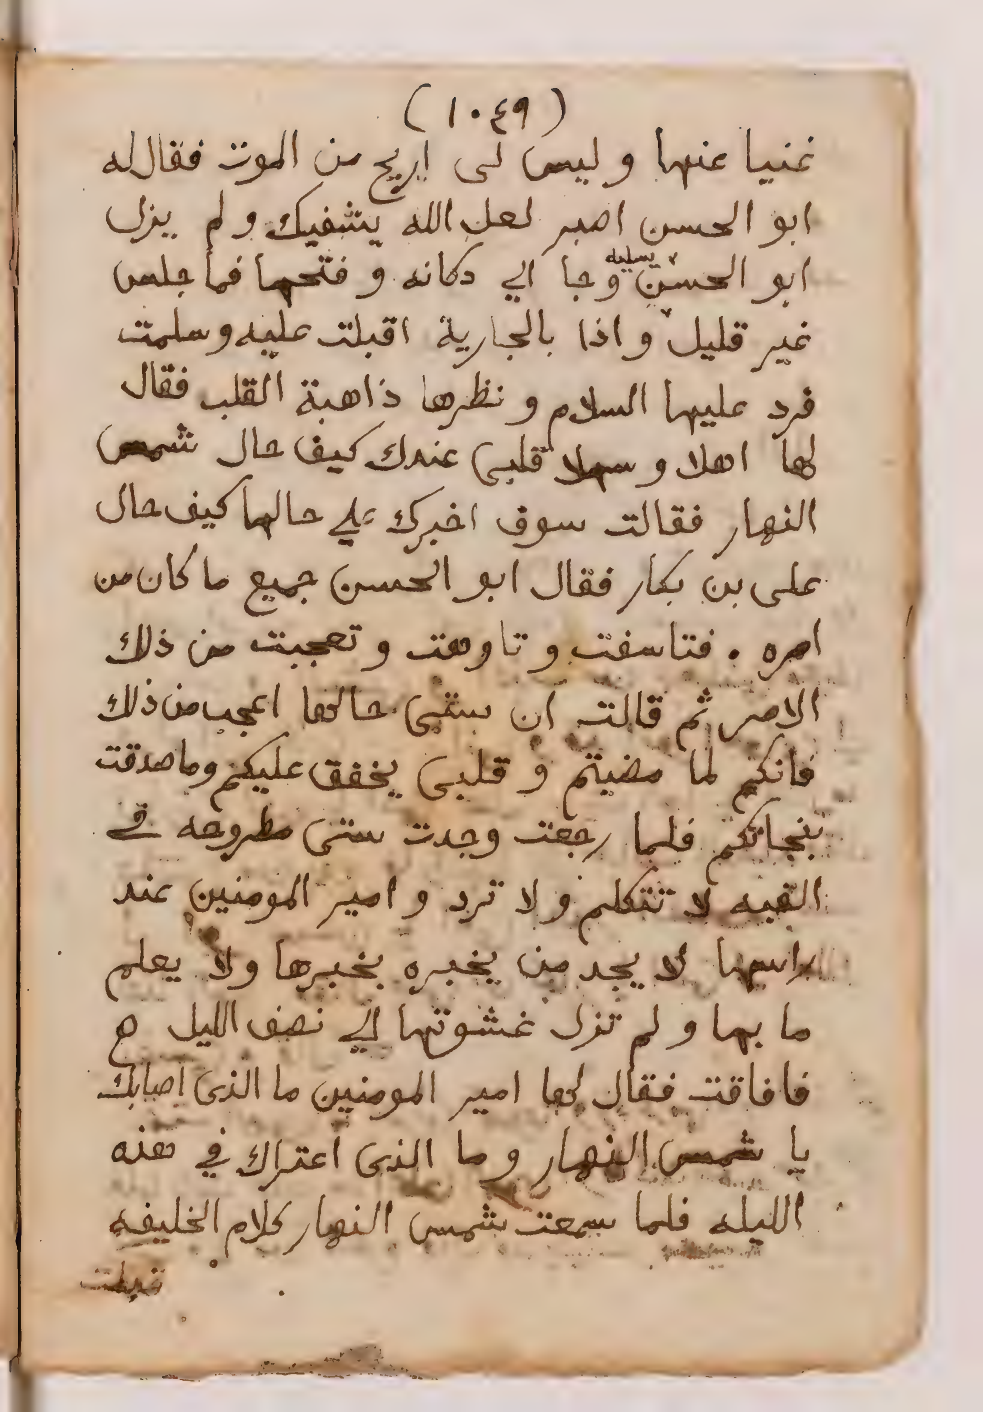 (١٠٤٩)
غنيا عنها و ليس لى اريح من الموت فقال له
ابو الحسن اصبر لعل الله يشفيك و لم يزل
ابو الحسن يسليه وجا الي دكانه و فتحها فما جلس
غير قليل و اذا بالجارية اقبلت عليه و سلمت
فرد عليها السلام و نظرها ذاهبة القلب فقال
لها اهلا و سهلا قلبى عندك كيف حال شمس
النهار فقالت سوف اخبرك علي حالها كيف حال
على بن بكار فقال ابو الحسن جميع ما كان من
امره . فتاسفت و تاوهت و تعجبت من ذلك
الامر ثم قالت ان ستى حالها اعجب من ذلك
فانكم لما مضيتم و قلبى يخفق عليكم وما صدقت
بنجاتكم فلما رجعت وجدت ستى مطروحه في
القبه لا تتكلم و لا ترد و امير المومنين عند
راسها لا يجد من يخبره بخبرها ولا يعلم
ما بها و لم تزل غشوتها الي نصف الليل
فافاقت فقال لها امير المومنين ما الذى اصابك
يا شمس النهار و ما الذى اعتراك في هذه
الليله فلما سمعت شمس النهار كلام الخليفه
قبلت